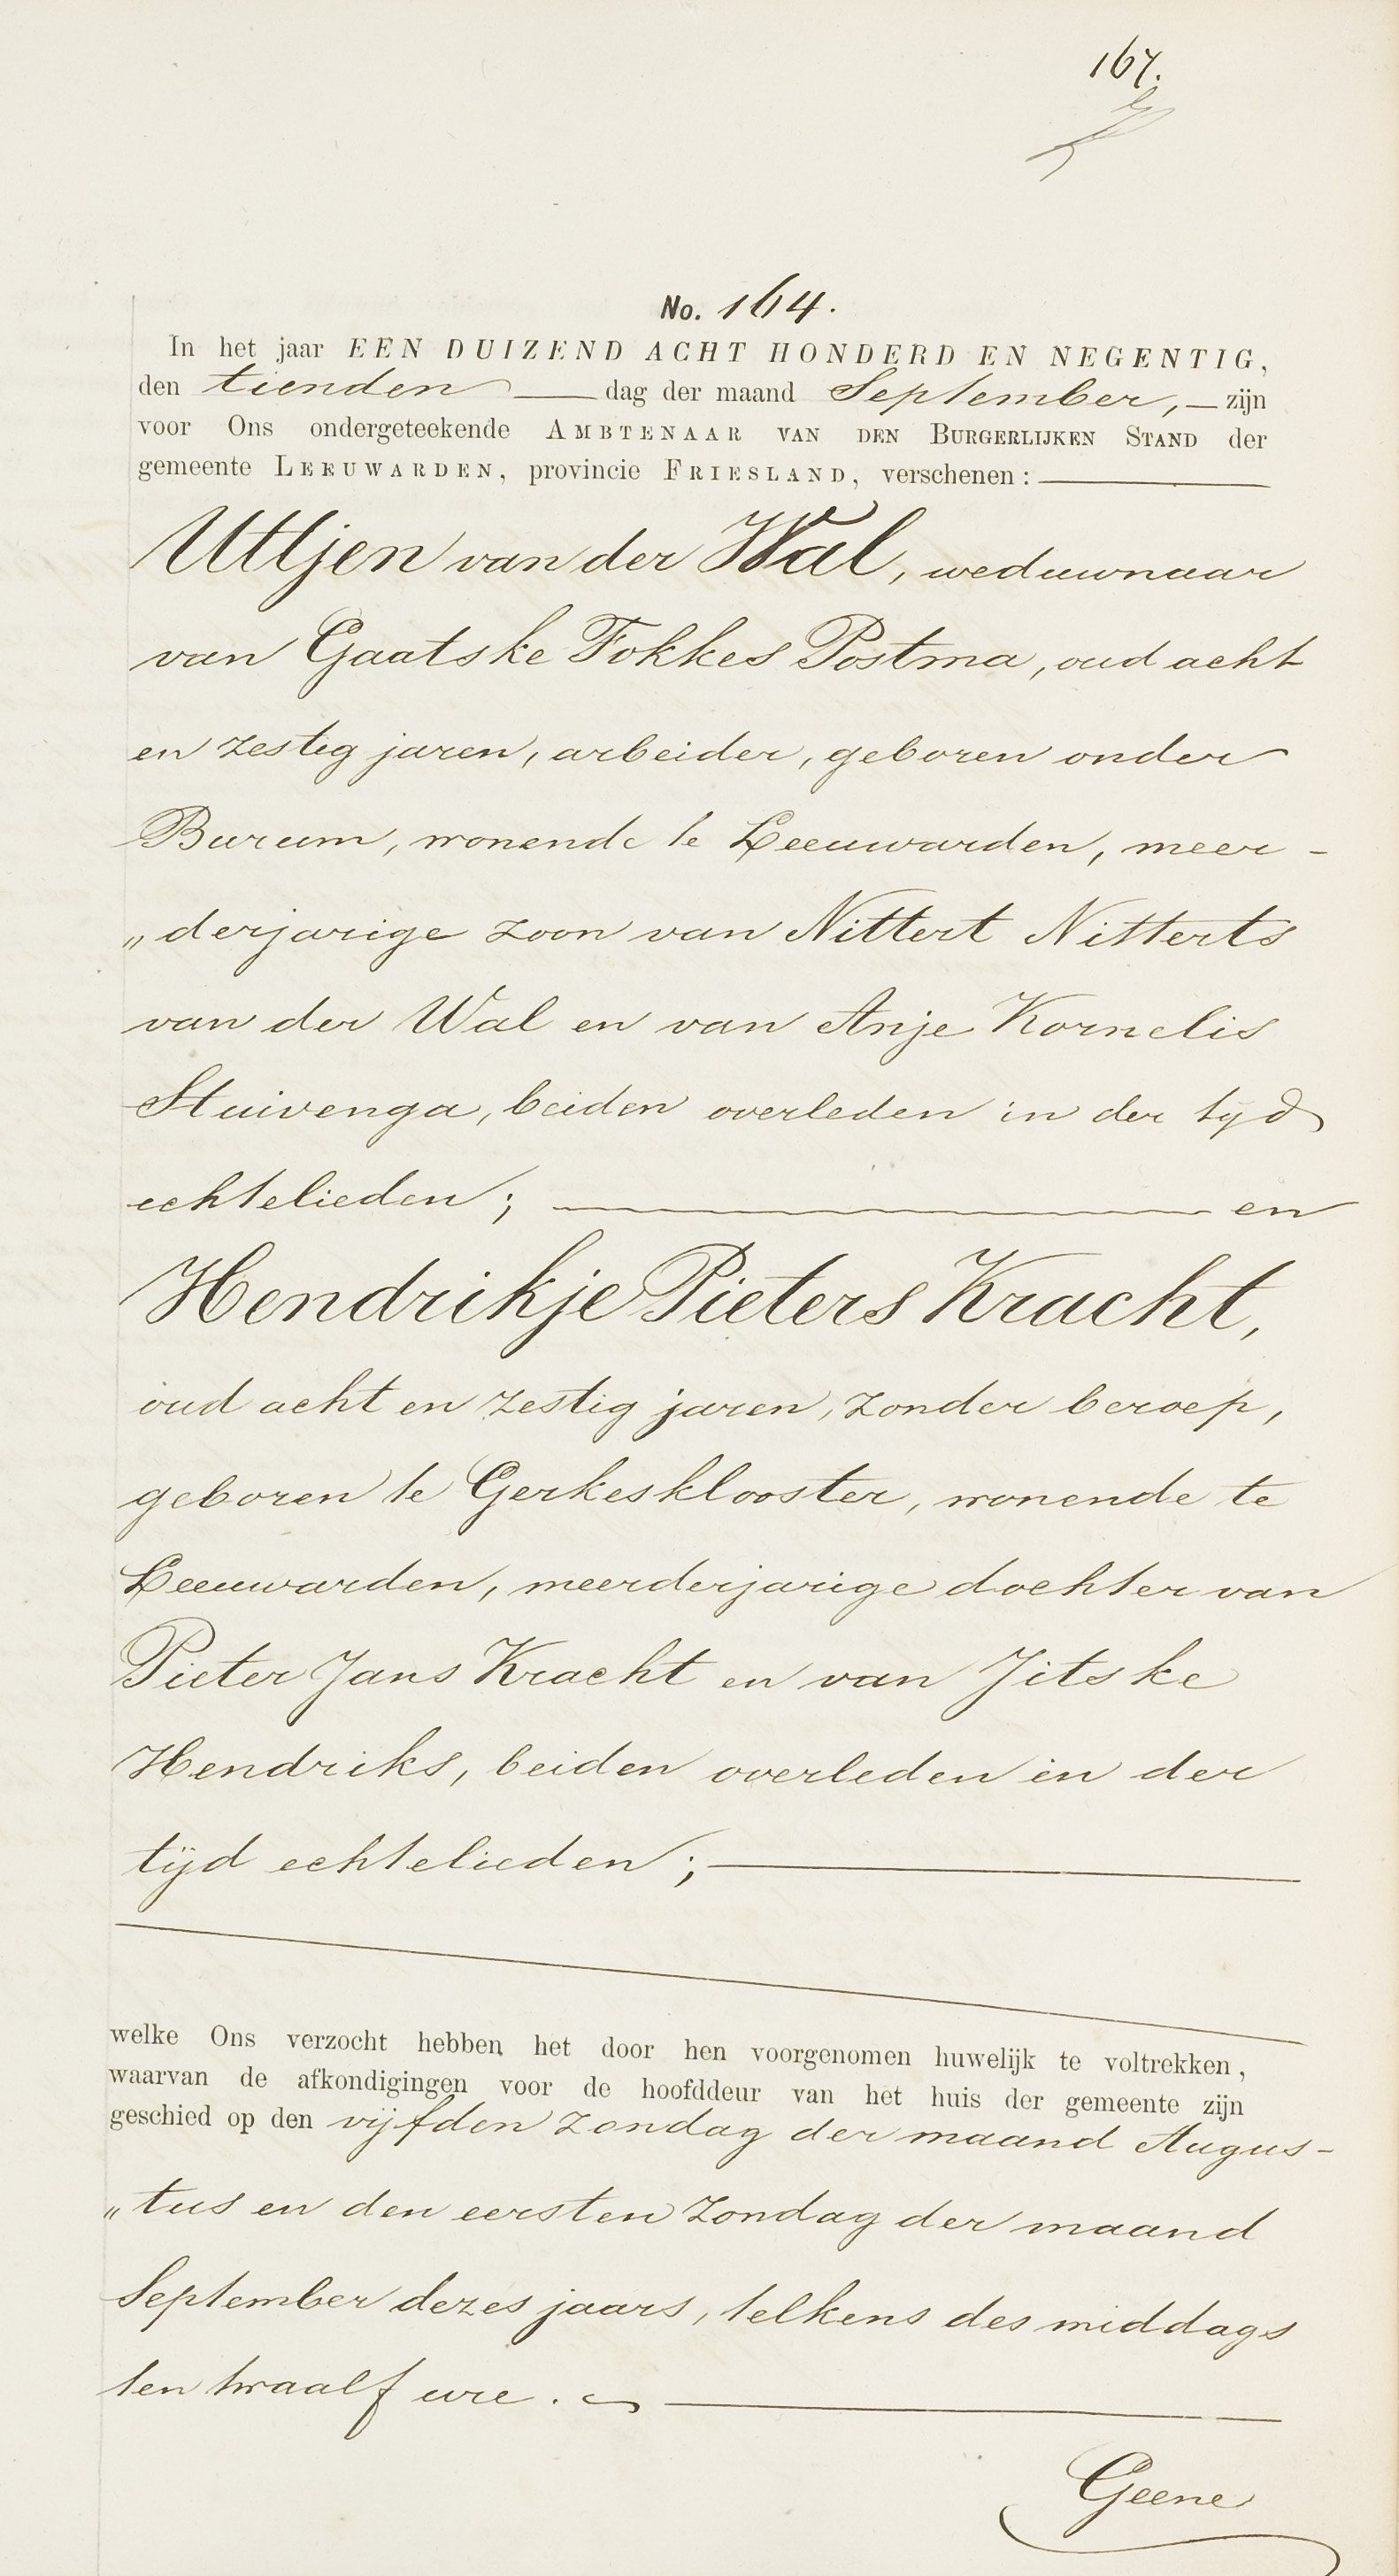 167.
No. 164.
In het jaar EEN DUIZEND ACHT HONDERD EN NEGENTIG,
den tienden dag der maand September, zijn
voor Ons ondergeteekende AMBTENAAR VAN DEN BURGERLIJKEN STAND der
gemeente LEEUWARDEN, provincie FRIESLAND, verschenen:
Ultjen van der Wal, weduwnaar
van Gaatske Fokkes Postma, oud acht
en zestig jaren, arbeider, geboren onder
Burum, wonende te Leeuwarden, meer-
„derjarige zoon van Nittert Nitterts
van der Wal en van Anje Kornelis
Stuivenga, beiden overleden in der tijd
echtelieden; en
Hendrikje Pieters Kracht,
oud acht en zestig jaren, zonder beroep,
geboren te Gerkesklooster, wonende te
Leeuwarden, meerderjarige dochter van
Pieter Jans Kracht en van Jitske
Hendriks, beiden overleden in der
tijd echtelieden;
welke Ons verzocht hebben het door hen voorgenomen huwelijk te voltrekken,
waarvan de afkondigingen voor de hoofddeur van het huis der gemeente zijn
geschied op den vijfden Zondag der maand Augus-
„tus en den eersten Zondag der maand
September dezes jaars, telkens des middags
ten twaalf ure.
Geene